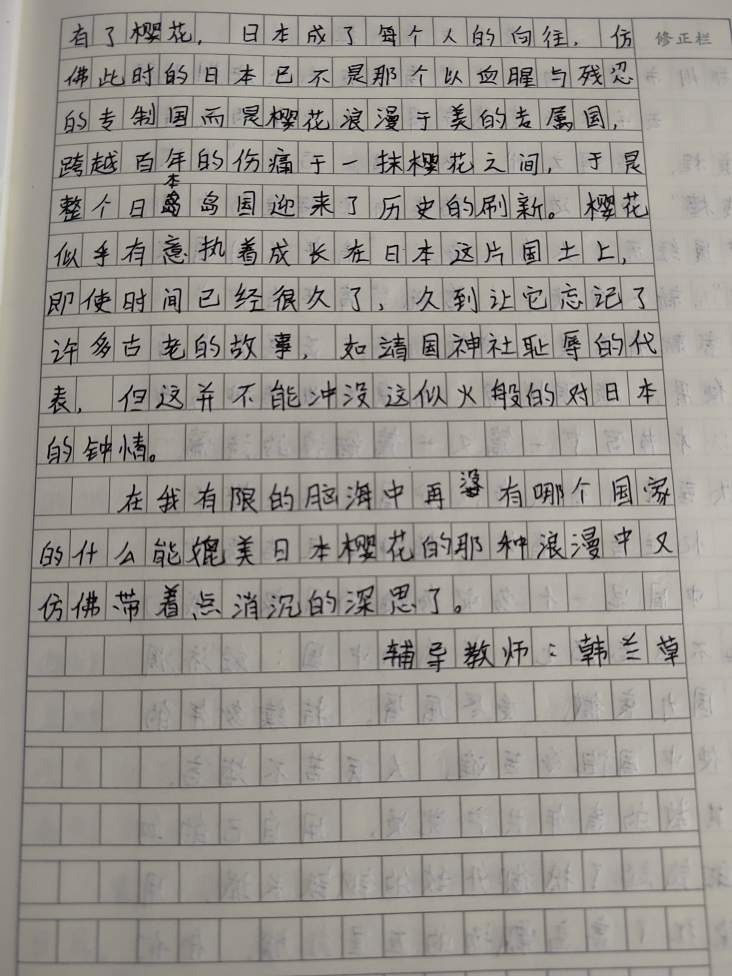 有了樱花，日本成了每个人的向往，仿
修正栏
佛此时的日本已不是那个以血腥与残忍
的专制国而是樱花浪漫于美的专属国，
跨越百年的伤痛于一抹樱花之间，于是
整个日本岛国迎来了历史的刷新。樱花
似乎有意执着成长在日本这片国土上，
即使时间已经很久了，久到让它忘记了
许多古老的故事，如靖国神社耻辱的代
表，但这并不能冲没这似火般的对日本
的钟情。
在我有限的脑海中再没有哪个国家
的什么能媲美日本樱花的那种浪漫中又
仿佛带着点消沉的深思了。
辅导教师：韩兰草